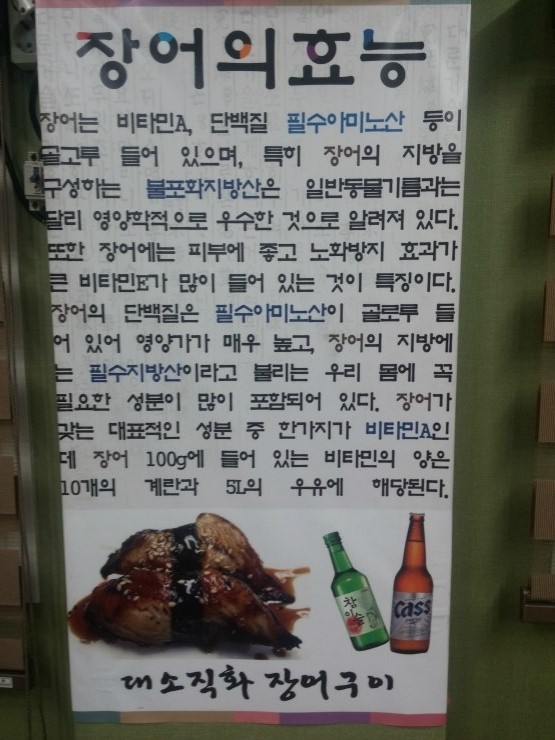 장어의효능
장어는 비타민A, 단백질 필수아미노산 등이
골고루 들어 있으며, 특히 장어의 지방을
구성하는 불포화지방산은 일반동물기름과는
달리 영양학적으로 우수한 것으로 알려져 있다.
또한 장어에는 피부에 좋고 노화방지 효과가
큰 비타민E가 많이 들어 있는 것이 특징이다.
장어의 단백질은 필수아미노산이 골로루 들
어 있어 영양가가 매우 높고, 장어의 지방에
는 필수지방산이라고 불리는 우리 몸에 꼭
필요한 성분이 많이 포함되어 있다. 장어가
갖는 대표적인 성분 중 한가지가 비타민A인
데 장어 100g에 들어 있는 비타민의 양은
10개의 계란과 5L의 우유에 해당된다.
참이슬
Cass
대소직화 장어구이